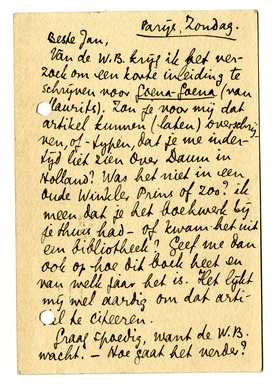 Parijs, Zondag.
Beste Jan,
Van de W.B. krijg ik het ver-
zoek om een korte inleiding te
schrijven voor Goena-Goena (van
Maurits). Zou je voor mij dat
artikel kunnen (laten) overschrij-
ven, of -typen, dat je me inder-
tijd liet zien over Daum in
Holland? Was het niet in een
oude Winkler Prins of zoo? ik
meen dat je het boekwerk bij
je thuis had – of kwam het uit
een bibliotheek? Geef me dan
ook op hoe dit boek heet en
van welk jaar het is. Het lijkt
mij wel aardig om dat arti-
kel te citeeren.
Graag spoedig, want de W.B.
wacht. – Hoe gaat het verder?